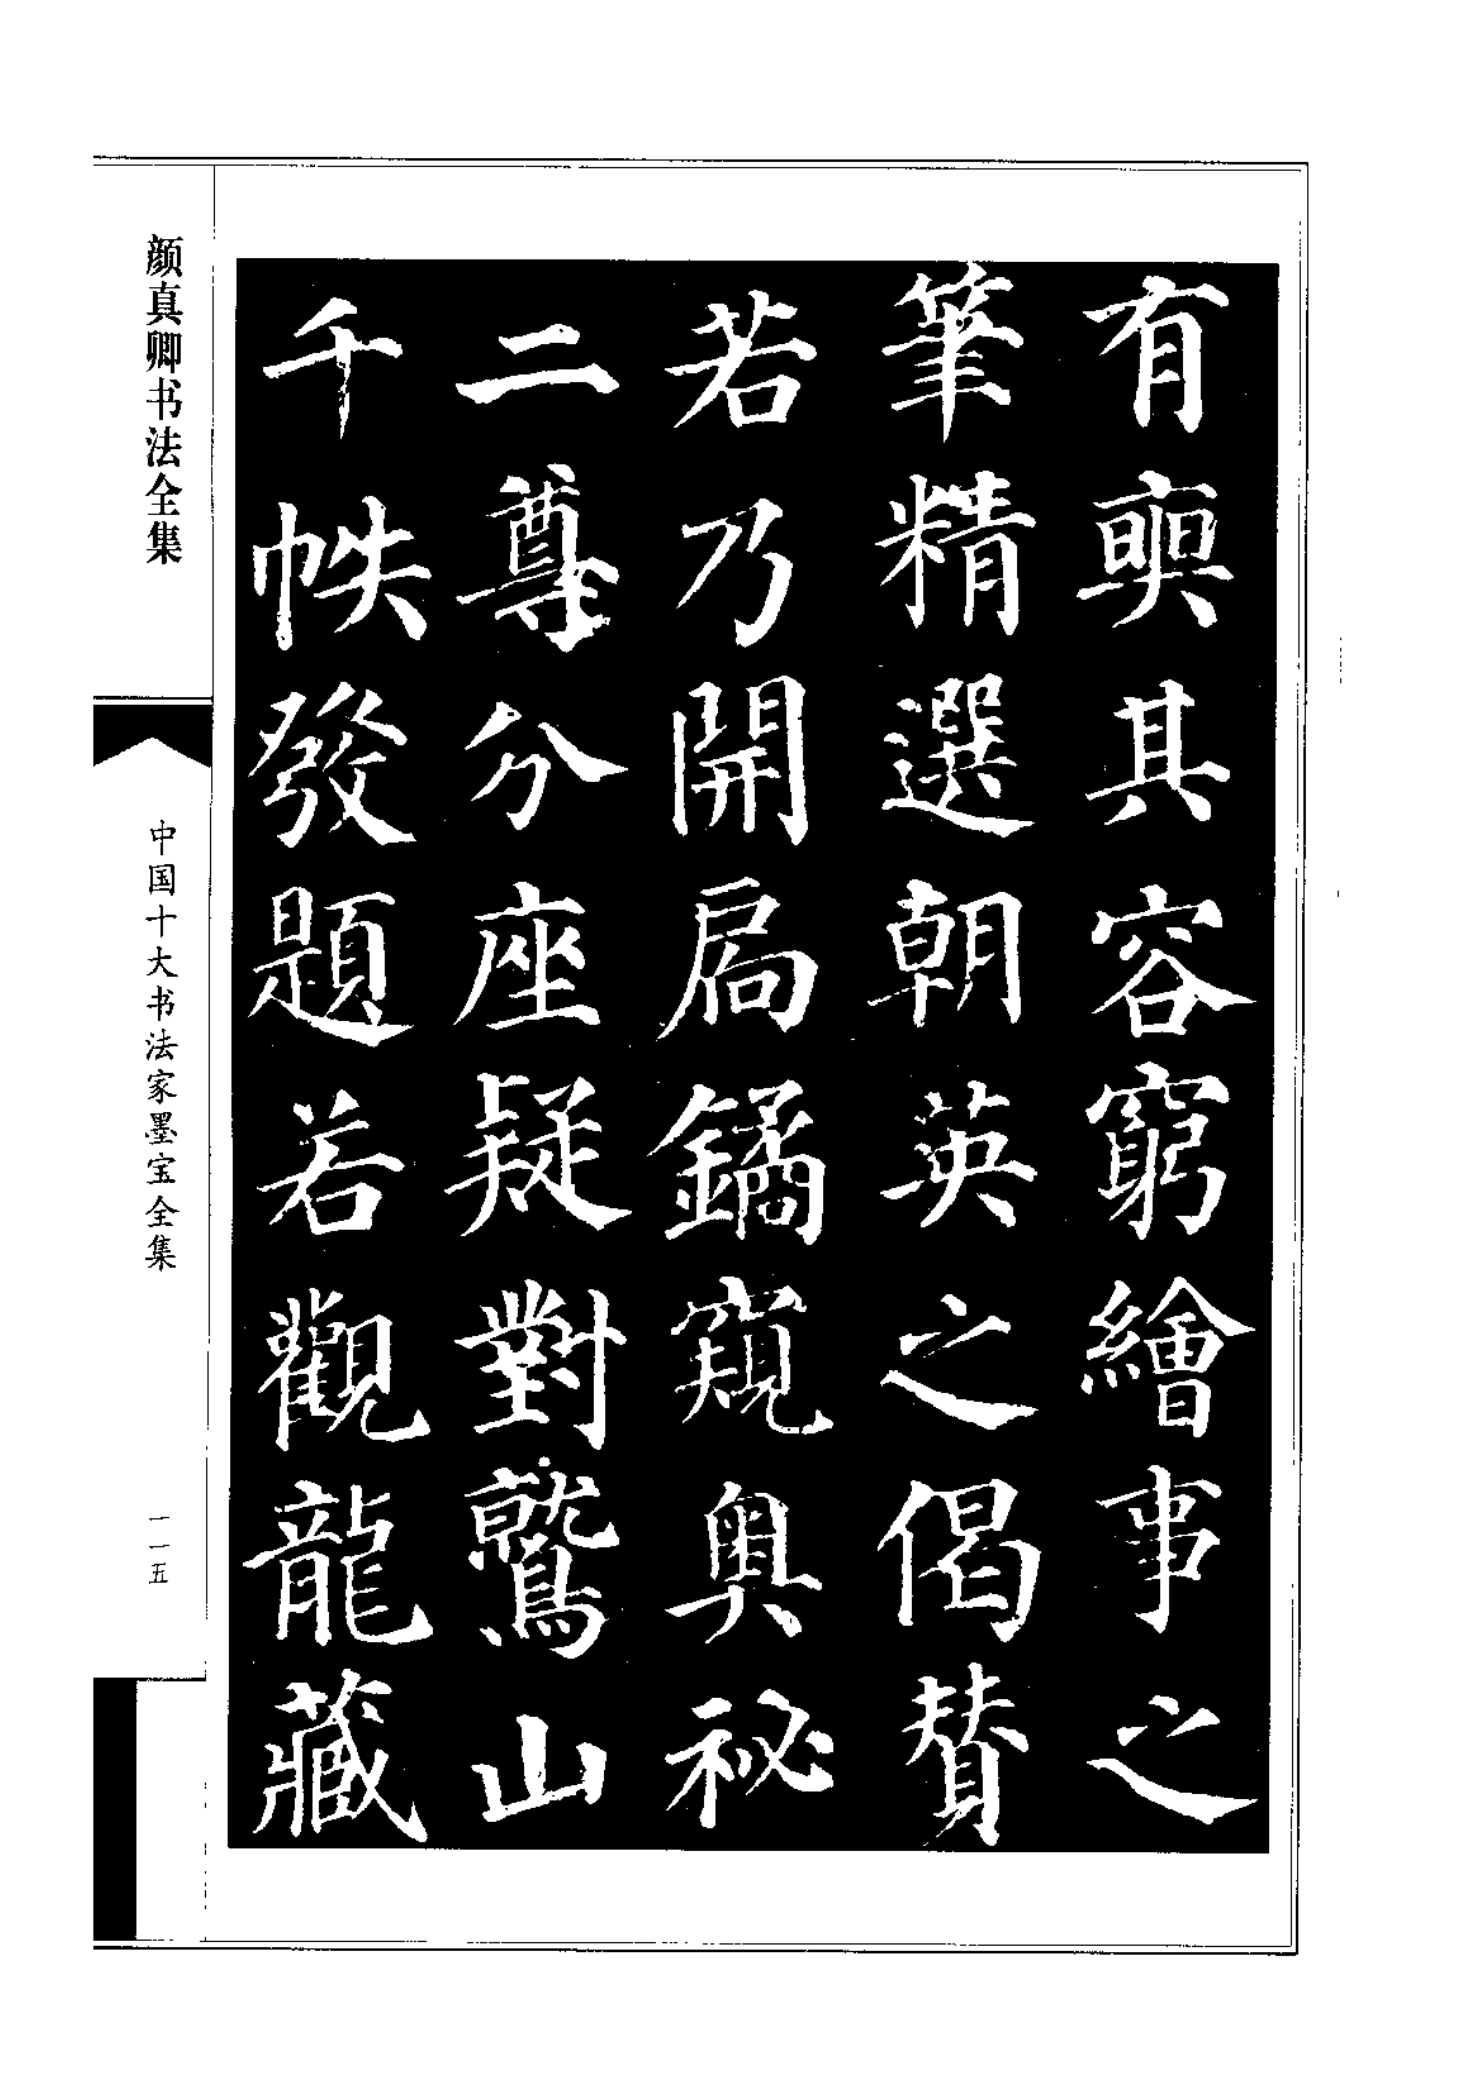 有奭其容窮繪事之
筆精選朝英之偈賛
若乃開扄鐍窺奧祕
二尊分座疑對鷲山
千帙發題若觀龍藏
颜真卿书法全集
中国十大书法家墨宝全集
一一五